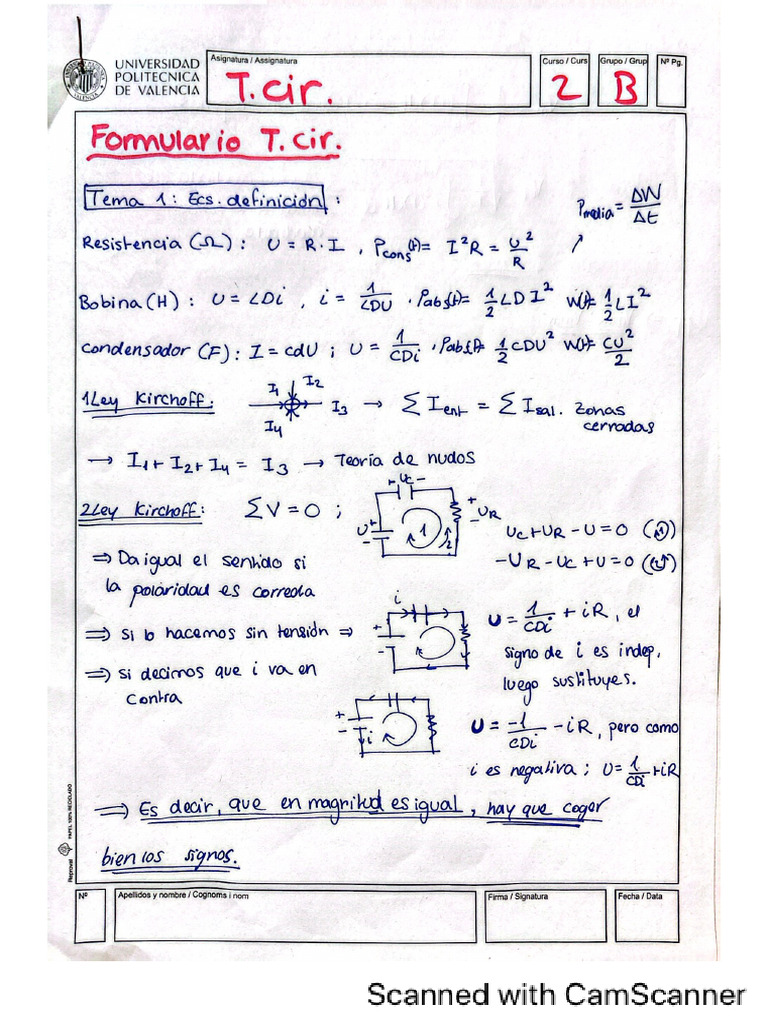 UNIVERSIDAD
POLITECNICA
DE VALENCIA
Asignatura / Assignatura
T.cir.
Curso / Curs
2
Grupo / Grup
B
Nº Pg.
Formulario T.cir.
Tema 1: Ecs. definición :
Pmedia = ΔW/Δt
Resistencia (Ω) : U = R·I , Pcons(t) = I²R = U²/R
Bobina (H) : U = LDi , i = 1/LDU . Pabs(t) = 1/2 LDI² W(t) = 1/2 LI²
Condensador (F) : I = cdU ; U = 1/CDi . Pabs(t) = 1/2 CDU² W(t) = CU²/2
1Ley Kirchoff:
I1 I2 I3 I4
→ ΣIent = ΣIsal. zonas
cerradas
→ I1 + I2 + I4 = I3 → Teoría de nudos
2Ley Kirchoff: ΣV = 0 ;
+ Uc -
U + -
1 2
+ UR -
Uc + UR - U = 0 (1)
- UR - Uc + U = 0 (2)
⇒ Da igual el sentido si
la polaridad es correcta
⇒ si lo hacemos sin tensión ⇒
i
+ -
U = 1/CDi + iR , el
signo de i es indep,
luego sustituyes.
⇒ si decimos que i va en
contra
+ - i
U = -1/CDi - iR, pero como
i es negativa ; U = 1/CDi + iR
⇒ Es decir, que en magnitud es igual, hay que coger
bien los signos.
Reproval PAPEL 100% RECICLADO
Nº
Apellidos y nombre / Cognoms i nom
Firma / Signatura
Fecha / Data
Scanned with CamScanner